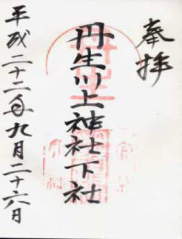 奉拝
丹生川上神社下社
平成二十二年九月二十六日